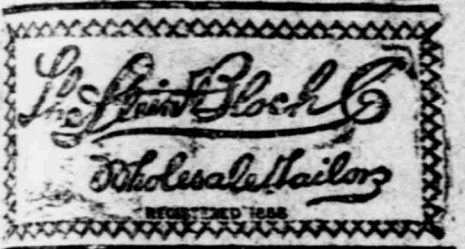 The Stein-Bloch Co
Wholesale Tailors
REGISTERED 1888